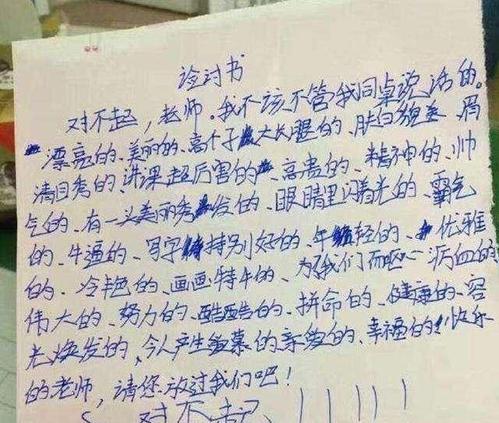 检讨书
对不起，老师。我不该不管我同桌说话的。
漂亮的、美丽的、高个子大长腿的、肤白貌美、眉
清目秀的、讲课超厉害的、高贵的、精神的、帅
气的、有一头美丽秀发的、眼睛里闪着光的、霸气
的、牛逼的、写字特别好的、年轻的、优雅
的、冷艳的、画画特牛的、为我们而呕心沥血的
伟大的、努力的、酷酷的、拼命的、健康的、容
光焕发的、令人产生爱慕的、亲爱的、幸福的快乐
的老师，请您放过我们吧！
对不起